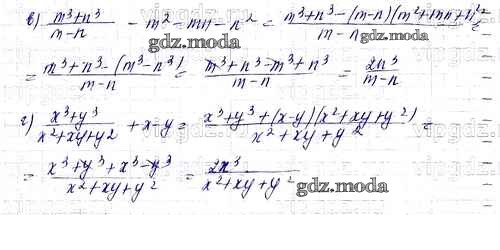 в) (m³+n³)/(m-n) - m² = mn - n² = (m³+n³-(m-n)(m²+mn+n²))/(m-n) =
gdz.moda
gdz.moda
= (m³+n³-(m³-n³))/(m-n) = (m³+n³-m³+n³)/(m-n) = 2n³/(m-n)
gdz.moda
г) (x³+y³)/(x²+xy+y²) + x-y = (x³+y³+(x-y)(x²+xy+y²))/(x²+xy+y²) =
= (x³+y³+x³-y³)/(x²+xy+y²) = 2x³/(x²+xy+y²)
gdz.moda